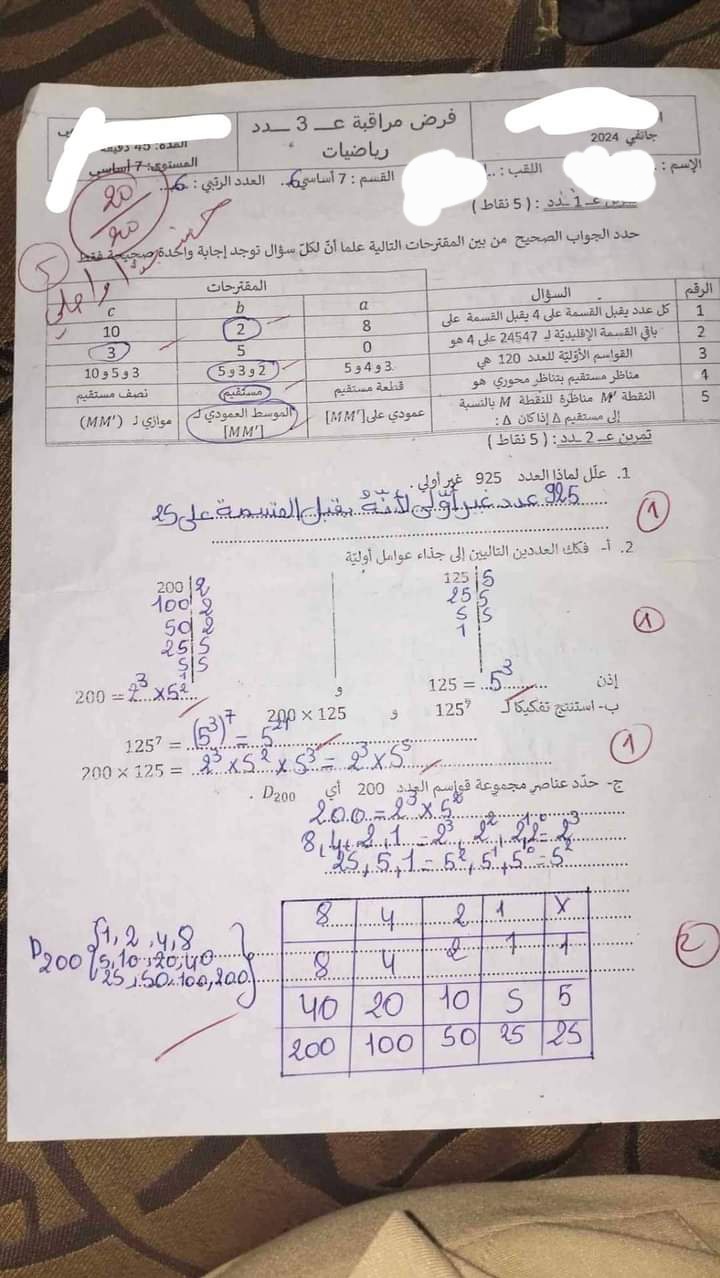 فرض مراقبة عـــ 3 ــدد
رياضيات
جانفي 2024
المدة: 45 دقيقة
المستوى: 7 أساسي
الإسم :
اللقب :
القسم : 7 أساسي 6 العدد الرتبي : 6
20/20
تمرين عـ 1 ـدد : ( 5 نقاط )
5
حدد الجواب الصحيح من بين المقترحات التالية علما أنّ لكلّ سؤال توجد إجابة واحدة صحيحة فقط
الرقم السؤال المقترحات
a b c
1 كل عدد يقبل القسمة على 4 يقبل القسمة على 8 2 10
2 باقي القسمة الإقليديّة لـ 24547 على 4 هو 0 5 3
3 القواسم الأوّليّة للعدد 120 هي 3 و 4 و 5 2 و 3 و 5 3 و 5 و 10
4 مناظر مستقيم بتناظر محوري هو قطعة مستقيم مستقيم نصف مستقيم
5 النقطة M' مناظرة للنقطة M بالنسبة إلى مستقيم Δ إذا كان Δ : عمودي على [MM'] الموسط العمودي لـ [MM'] موازي لـ (MM')
تمرين عـ 2 ـدد : ( 5 نقاط )
1. علّل لماذا العدد 925 غير أولي.
925 عدد غير أوّلي لأنّه يقبل القسمة على 25
1
2. أ- فكك العددين التاليين إلى جذاء عوامل أوليّة
125 | 5
25 | 5
5 | 5
1
200 | 2
100 | 2
50 | 2
25 | 5
5 | 5
1
1
إذن 125 = 5³ و 200 = 2³ × 5²
ب- استنتج تفكيكا لـ 125⁷ و 200 × 125
125⁷ = (5³)⁷ = 5²¹
1
200 × 125 = 2³ × 5² × 5³ = 2³ × 5⁵
ج- حدّد عناصر مجموعة قواسم العدد 200 أي D₂₀₀ .
200 = 2³ × 5²
8, 4, 2, 1 = 2³, 2², 2¹, 2⁰ = 2³
25, 5, 1 = 5², 5¹, 5⁰ = 5²
8 4 2 1 X
8 4 2 1 1
40 20 10 5 5
200 100 50 25 25
D₂₀₀ {1, 2, 4, 8
5, 10, 20, 40
25, 50, 100, 200}
2